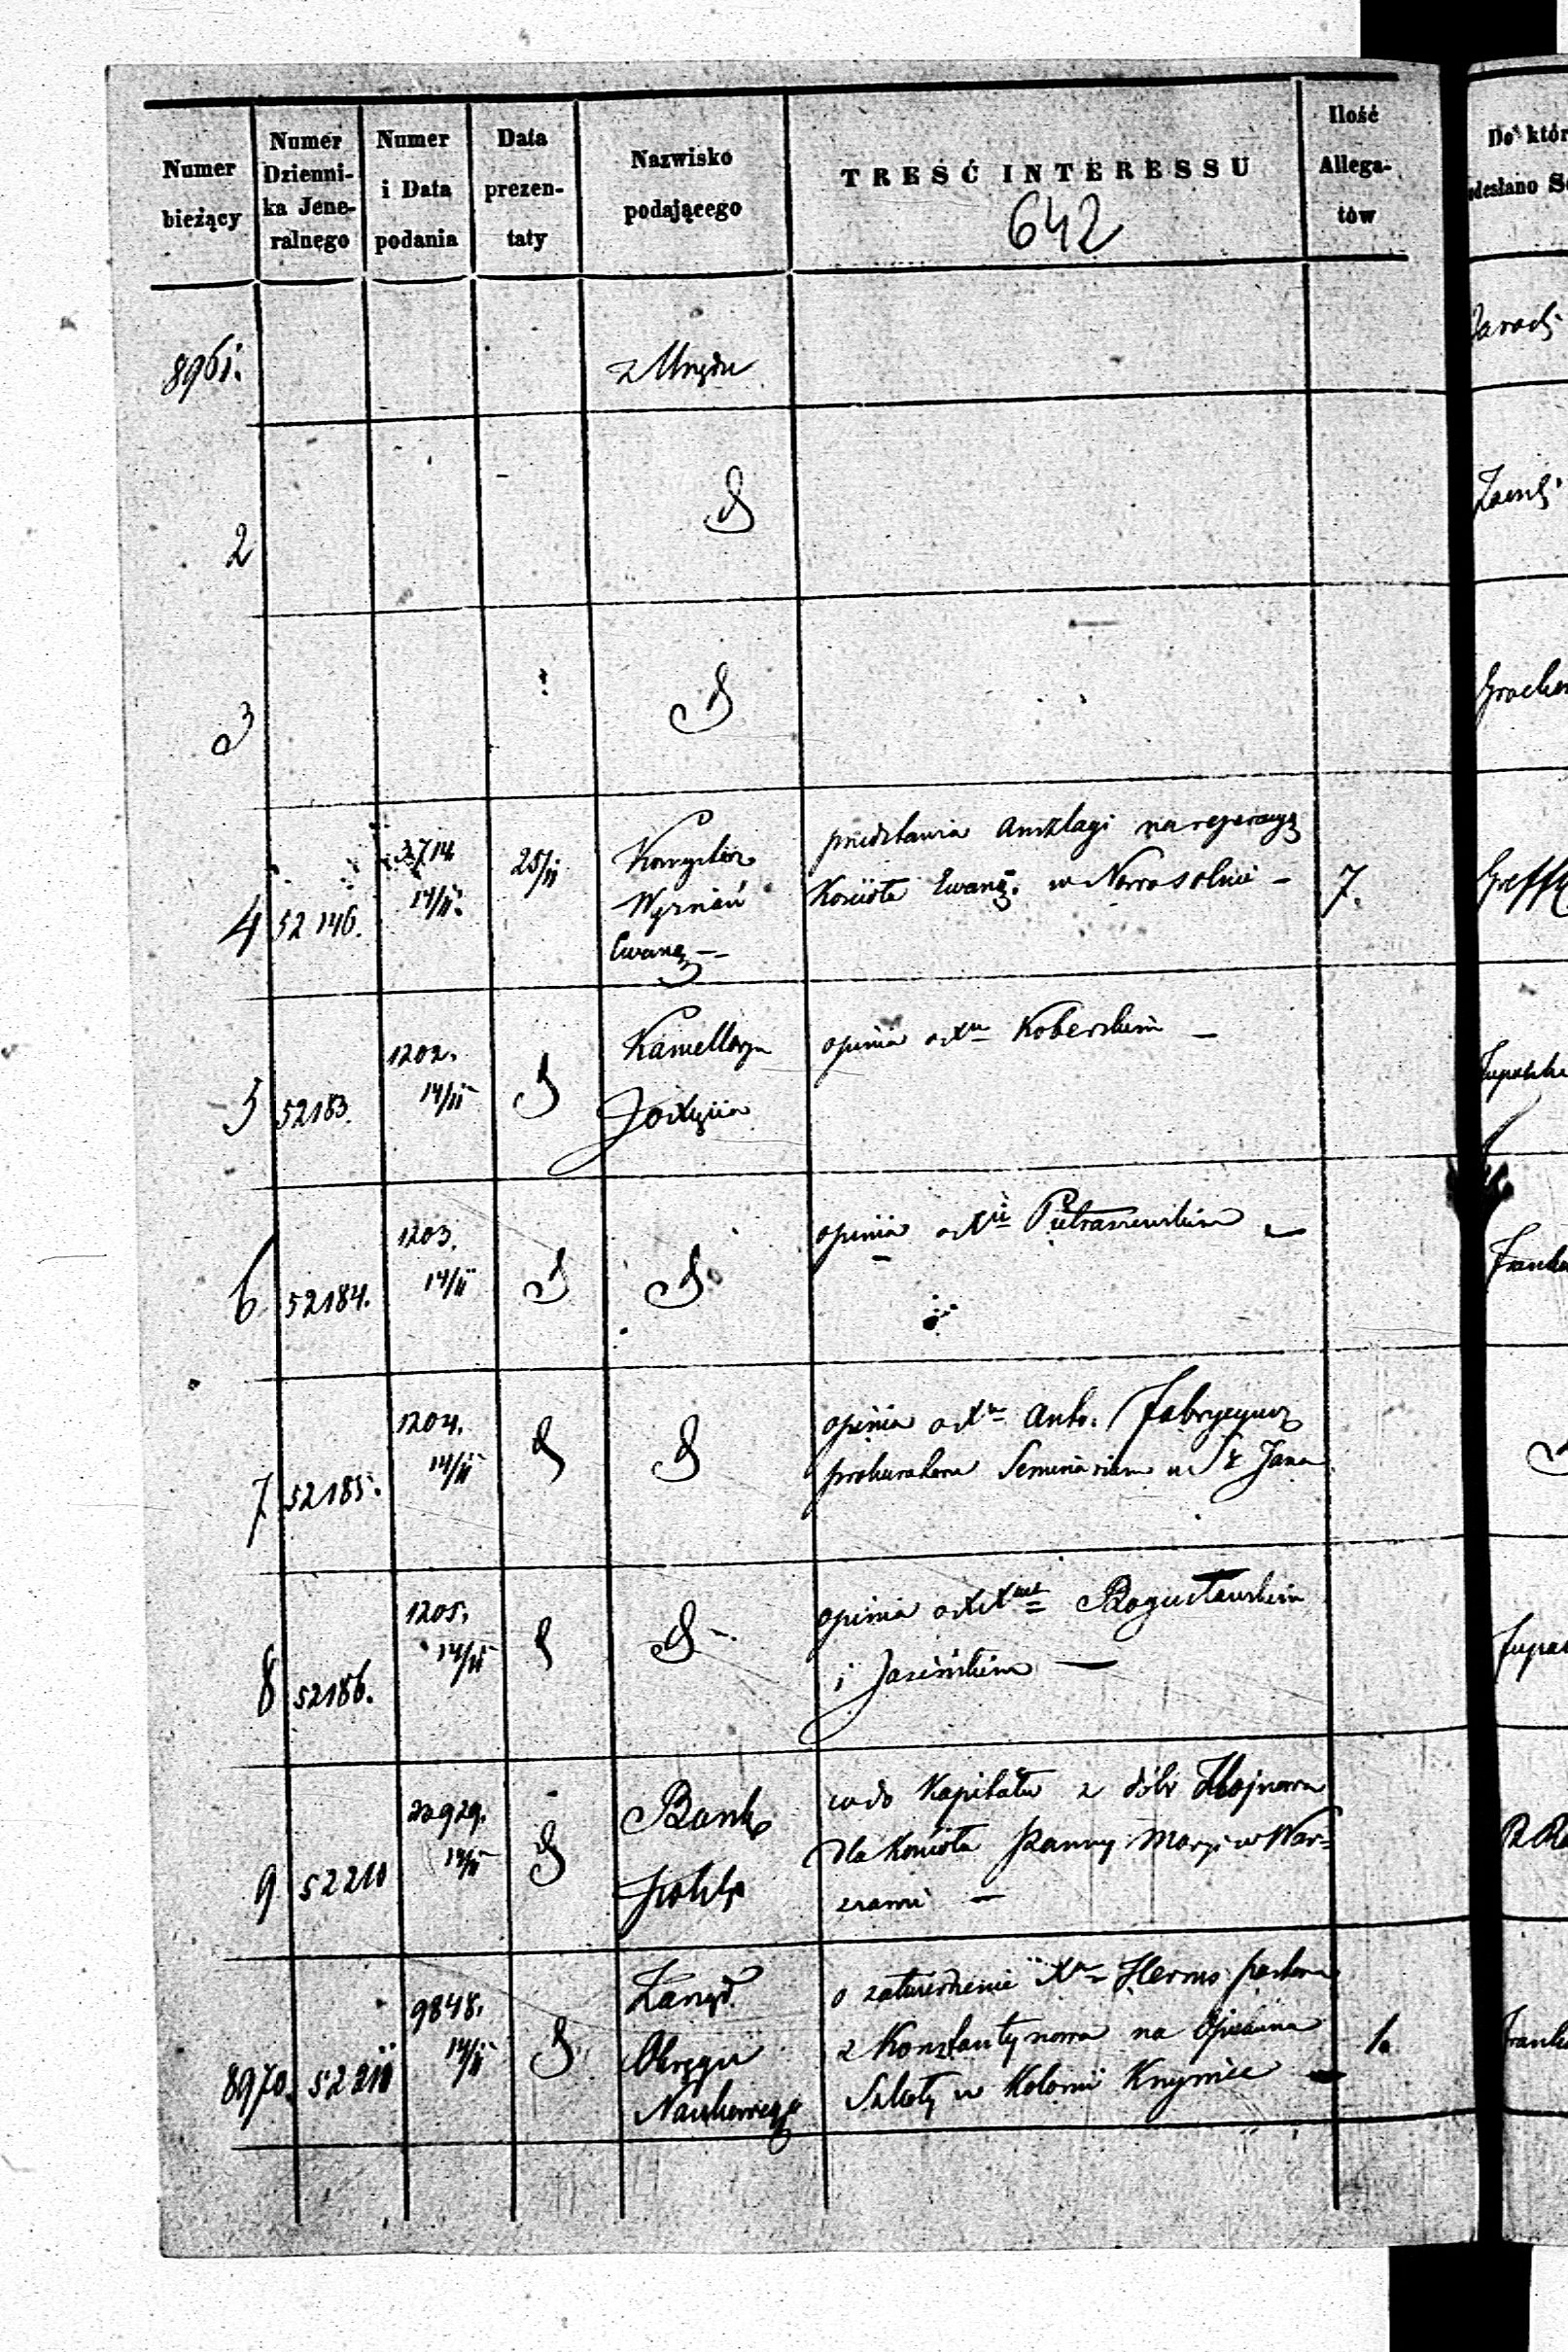 Numer bieżący
Numer Dzienni-ka Jene-ralnego
Numer i Data podania
Data prezen-taty
Nazwisko podającego
TREŚĆ INTERESSU
642
Ilość Allega-tów
Do któr
odesłano
8961.
z Urzędu
2
3
4
52146.
3714
14/11.
25/11
Konsystorz
Wyznań
Ewang
przedstawia Anszlagi na reperacyę
Kościoła Ewang. w Nowosolnie –
7.
5
52183.
1202.
14/11
Kancellarya
opinia o Xu Koberskim –
6
52184.
1203.
14/11
opinia o Xu Pietraszewskim –
7
52185.
1204.
14/11
opinia o Xu Anto. Fabrycyusz
prokuratora Seminarium u St Jana
8
52186.
1205.
14/11
opinia o XXach Bogusławskim
i Jasińskim –
9
52210
20929.
14/11
Bank
Polski
co do Kapitału z dóbr
dla Kościoła Panny Maryi w War=
szawie –
8970.
52211
9848.
14/11
Zarząd
Okręgu
Naukowego
o zatwierdzenie Xa Herms pastora
z Konstantynowa na Opiekuna
Szkoły w Kolonii –
1.